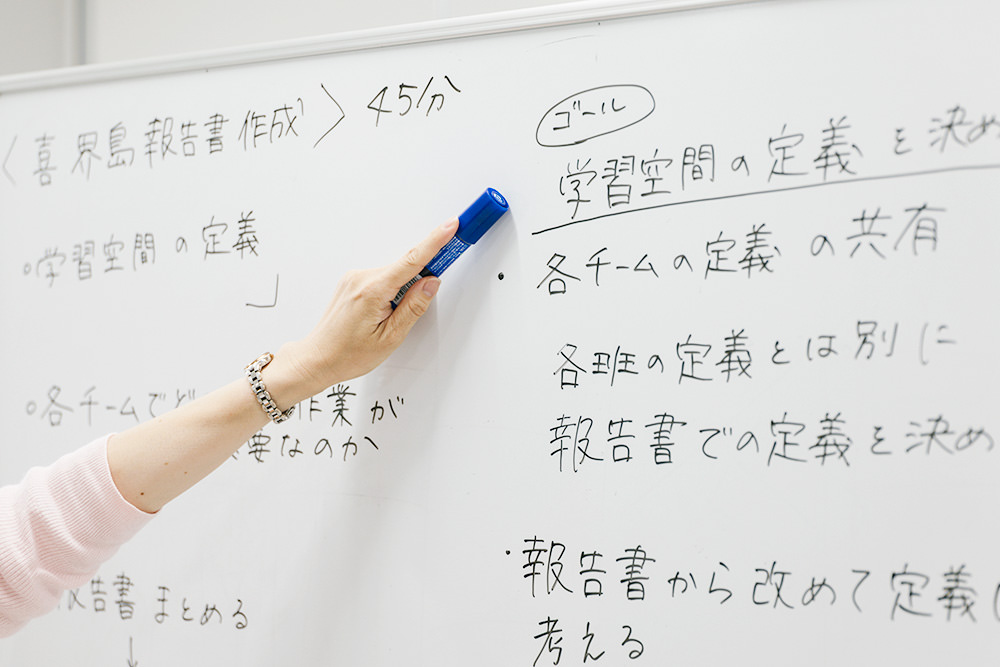 〈喜界島報告書作成〉 45分
・学習空間の定義
・各チームでど 作業が
要なのか
報告書まとめる
↓
ゴール
学習空間の定義を決め
・各チームの定義の共有
各班の定義とは別に
報告書での定義を決め
・報告書から改めて定義
考える